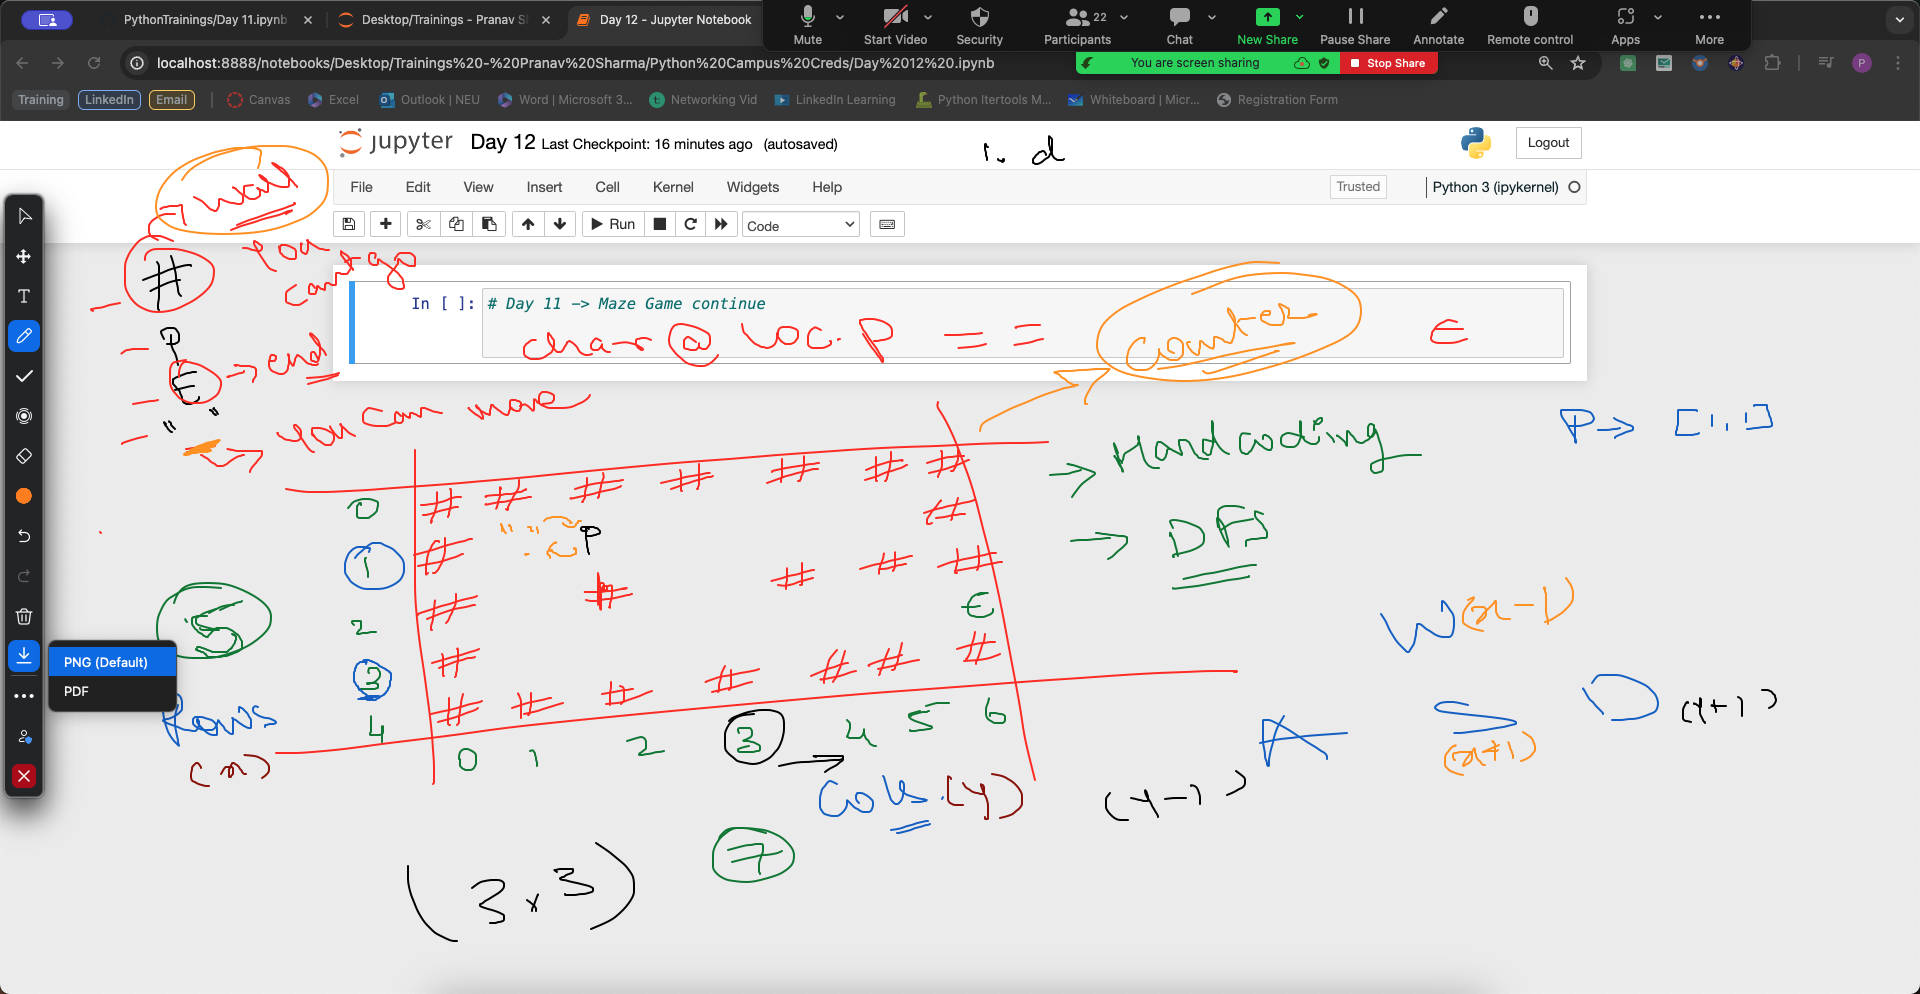 PythonTrainings/Day 11.ipynb
Desktop/Trainings - Pranav S
Day 12 - Jupyter Notebook
Mute
Start Video
Security
22
Participants
Chat
New Share
Pause Share
Annotate
Remote control
Apps
More
localhost:8888/notebooks/Desktop/Trainings%20-%20Pranav%20Sharma/Python%20Campus%20Creds/Day%2012%20.ipynb
You are screen sharing
Stop Share
P
Training
LinkedIn
Email
Canvas
Excel
Outlook | NEU
Word | Microsoft 3...
Networking Vid
LinkedIn Learning
Python Itertools M...
Whiteboard | Micr...
Registration Form
jupyter
Day 12 Last Checkpoint: 16 minutes ago (autosaved)
Logout
File
Edit
View
Insert
Cell
Kernel
Widgets
Help
Trusted
Python 3 (ipykernel)
Run
Code
In [ ]: # Day 11 -> Maze Game continue
i. d
wall
# You can't go
P
E -> end
" "
-> You can move
char @ loc. P == E
counter
-> Hardcoding
-> DFS
P -> [1,1]
0 # # # # # # #
1 # " " P #
2 # # # # # E
3 # # # # #
4 # # # #
0 1 2 3 4 5 6
5
Rows
(x)
Cols. (y)
7
(3 x 3)
W (x-1)
A (y-1)
S (x+1)
D (y+1)
PNG (Default)
PDF